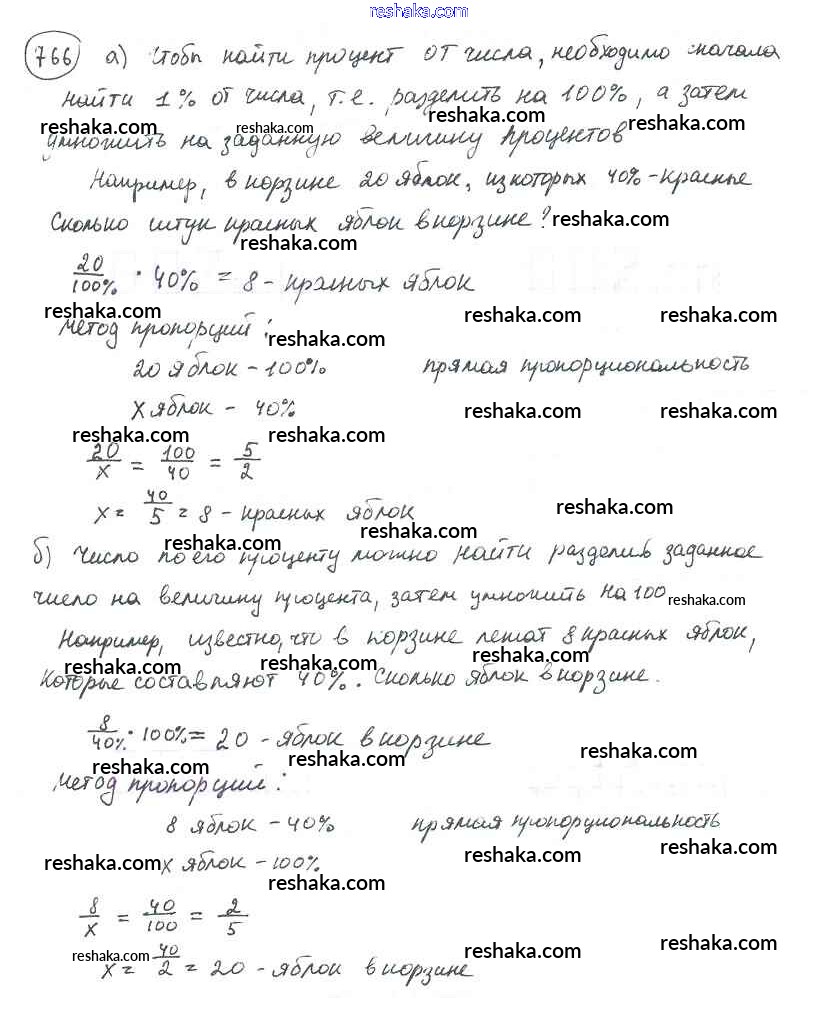 reshaka.com
766 а) Чтобы найти процент от числа, необходимо сначала
найти 1% от числа, т.е. разделить на 100%, а затем
reshaka.com reshaka.com reshaka.com reshaka.com
умножить на заданную величину процентов
Например, в корзине 20 яблок, из которых 40% - красные
Сколько штук красных яблок в корзине? reshaka.com
reshaka.com
20/100% · 40% = 8 - красных яблок
reshaka.com reshaka.com reshaka.com
Метод пропорций: reshaka.com
20 яблок - 100% прямая пропорциональность
x яблок - 40% reshaka.com reshaka.com
reshaka.com reshaka.com
20/x = 100/40 = 5/2
x = 40/5 = 8 - красных яблок reshaka.com
reshaka.com reshaka.com
б) Число по его проценту можно найти разделив заданное
число на величину процента, затем умножить на 100 reshaka.com
Например, известно, что в корзине лежат 8 красных яблок,
reshaka.com reshaka.com reshaka.com
которые составляют 40%. Сколько яблок в корзине.
8/40% · 100% = 20 - яблок в корзине
reshaka.com reshaka.com reshaka.com
Метод пропорций:
8 яблок - 40% прямая пропорциональность
reshaka.com x яблок - 100% reshaka.com reshaka.com
reshaka.com
8/x = 40/100 = 2/5
reshaka.com reshaka.com reshaka.com
x = 40/2 = 20 - яблок в корзине